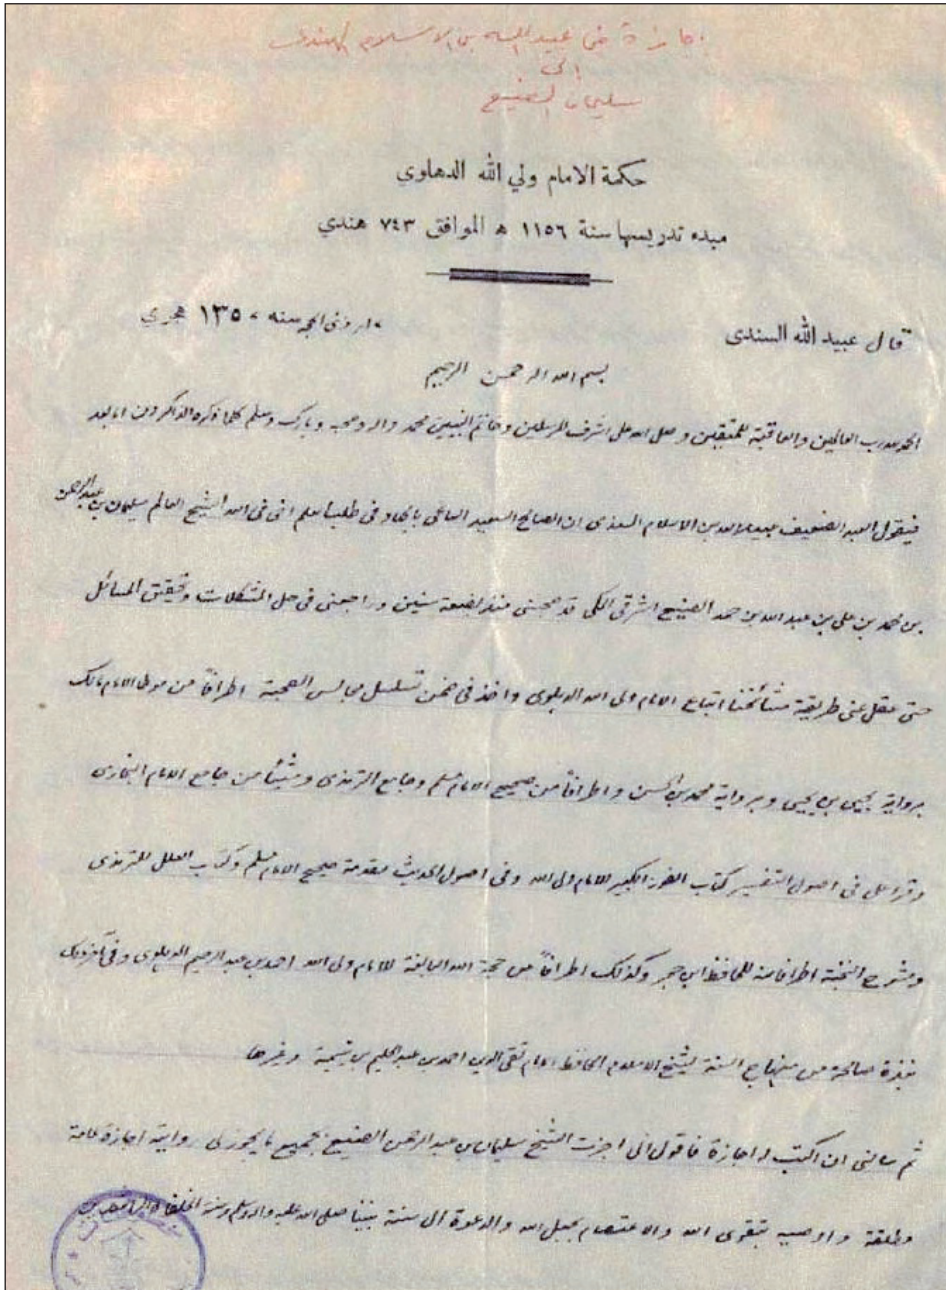 اجازة من عبيد الله بن الاسلام الهندي
الى
سليمان الصنيع
حكمة الامام ولي الله الدهلوي
مبدء تدريسها سنة ١١٥٦ ه الموافق ٧٤٣ هندي
قال عبيد الله السندى
ذى الحجه سنه ١٣٥٠ هجري
بسم الله الرحمن الرحيم
الحمد لله رب العالمين والعاقبة للمتقين وصلى الله على اشرف المرسلين وخاتم النبيين محمد واله وصحبه وبارك وسلم كلما ذكره الذاكرون اما بعد
فيقول العبد الضعيف عبيد الله بن الاسلام السندى ان الصالح السعيد الساعى فى طلب العلم اخى فى الله الشيخ العالم سليمان بن عبد الرحمن
بن محمد بن على بن عبد الله بن حمد الصنيع المكى قد صحبنى منذ بضعة سنين وراجعنى فى حل المشكلات وتحقيق المسائل
حتى عقل عنى طريقة مشائخنا اتباع الامام ولى الله الدهلوى واخذ فى ضمن تسلسل مجالس الصحبة اطرافاً من موطا الامام مالك
برواية يحيى بن يحيى وبرواية محمد بن الحسن واطرافاً من صحيح الامام مسلم وجامع الترمذى وشيئاً من جامع الامام البخارى
وقرا على فى اصول التفسير كتاب الفوز الكبير للامام ولى الله وفى اصول الحديث مقدمة صحيح الامام مسلم وكتاب العلل للترمذى
وشرح النخبة اطرافا منه للحافظ ابن حجر وكذلك اطرافاً من حجة الله البالغة للامام ولى الله احمد بن عبد الرحيم الدهلوى
نبذة صالحة من منهاج السنة لشيخ الاسلام الحافظ الامام تقى الدين احمد بن عبد الحليم بن تيمية وغيرها
ثم سالنى ان اكتب له اجازة فاقول انى اجزت الشيخ سليمان بن عبد الرحمن الصنيع بجميع ما يجوز لى روايته اجازة عامة
مطلقة واوصيه بتقوى الله والاعتصام بحبل الله والدعوة الى سنة نبينا صلى الله عليه واله وسلم وسنة الخلفاء الراشدين